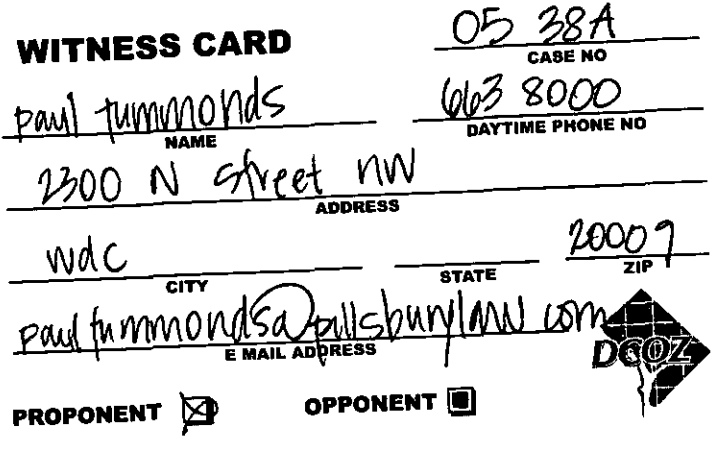 WITNESS CARD
05 38A
CASE NO
paul tummonds
663 8000
NAME
DAYTIME PHONE NO
2300 N Street NW
ADDRESS
wdc
20009
CITY
STATE
ZIP
paul tummonds@pillsburylaw com
E MAIL ADDRESS
DCOZ
PROPONENT
OPPONENT